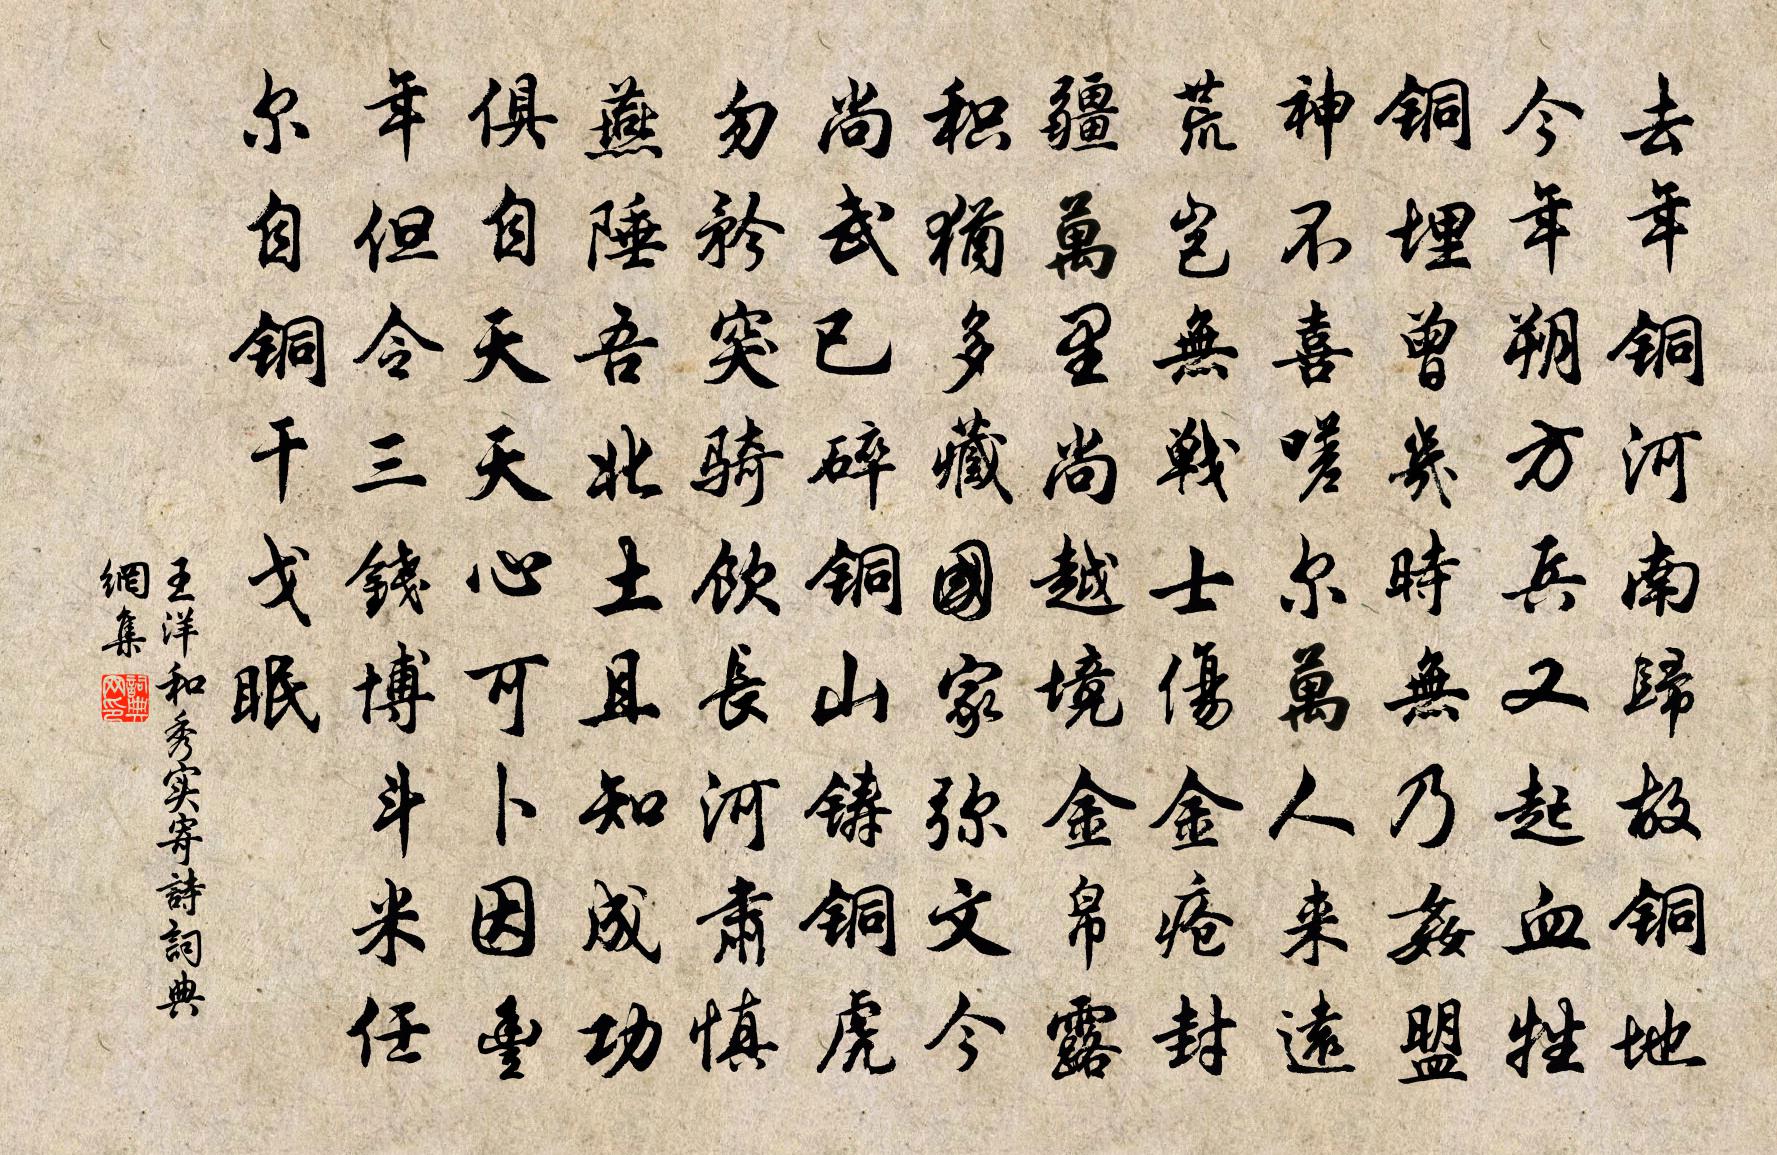 去年铜河南歸故铜地
今年朔方兵又起血牲
铜埋曾幾時無乃姦盟
神不喜嗟尔萬人来遠
荒岂無戦士傷金瘡封
疆萬里尚越境金帛露
积猶多藏國家弥文今
尚武已碎铜山鋳铜虎
勿矜突骑飲長河肅慎
燕陲吾北土且知成功
俱自天天心可卜因豊
年但令三錢博斗米任
尔自铜干戈眠
王洋和秀实寄詩詞典
網集
詩詞典网印